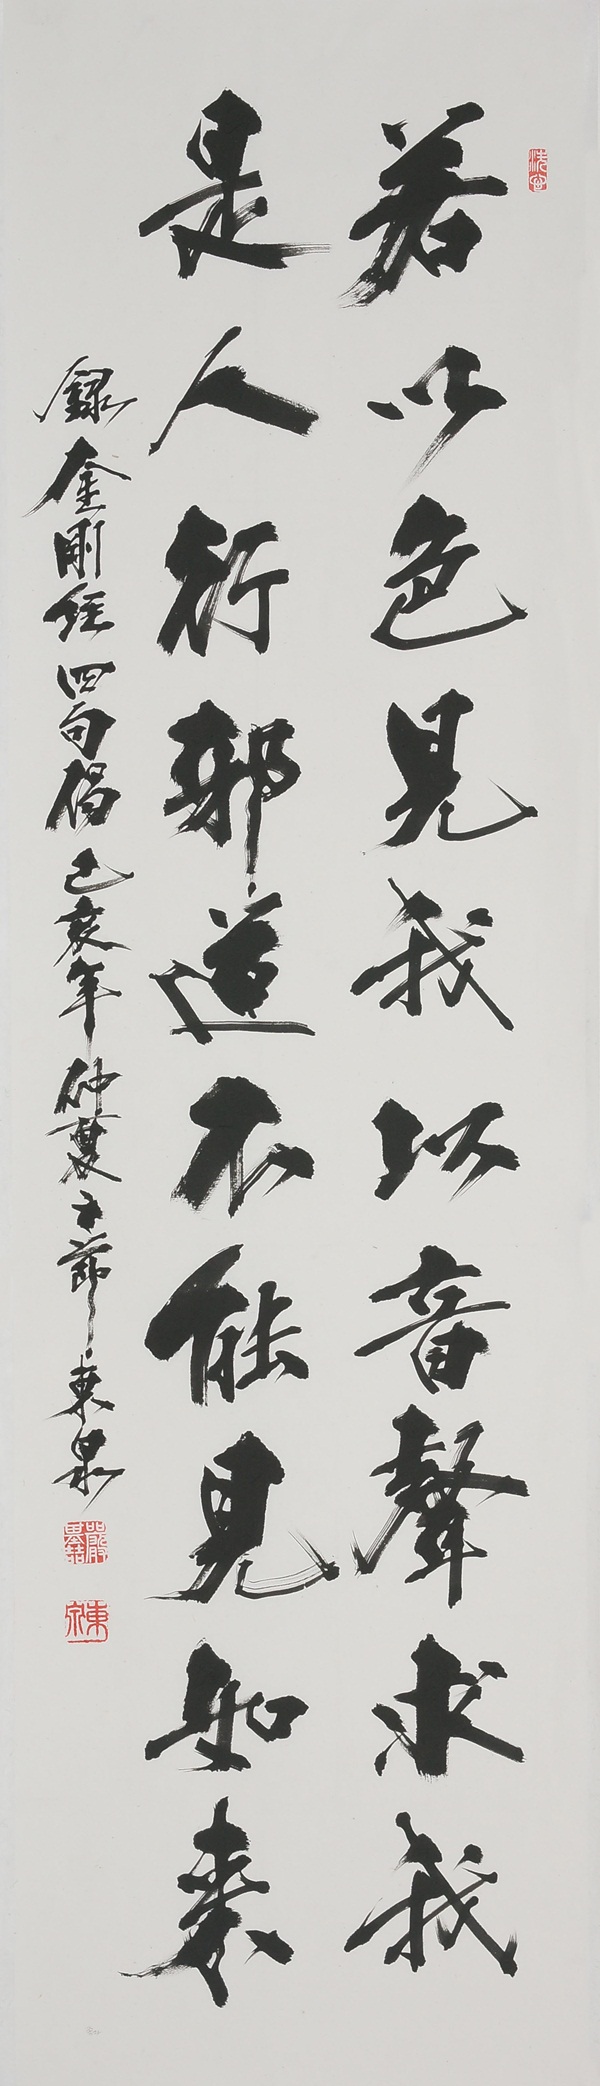 若以色見我以音聲求我
是人行邪道不能見如來
錄金剛經四句偈己亥年仲夏之節東泉
東泉